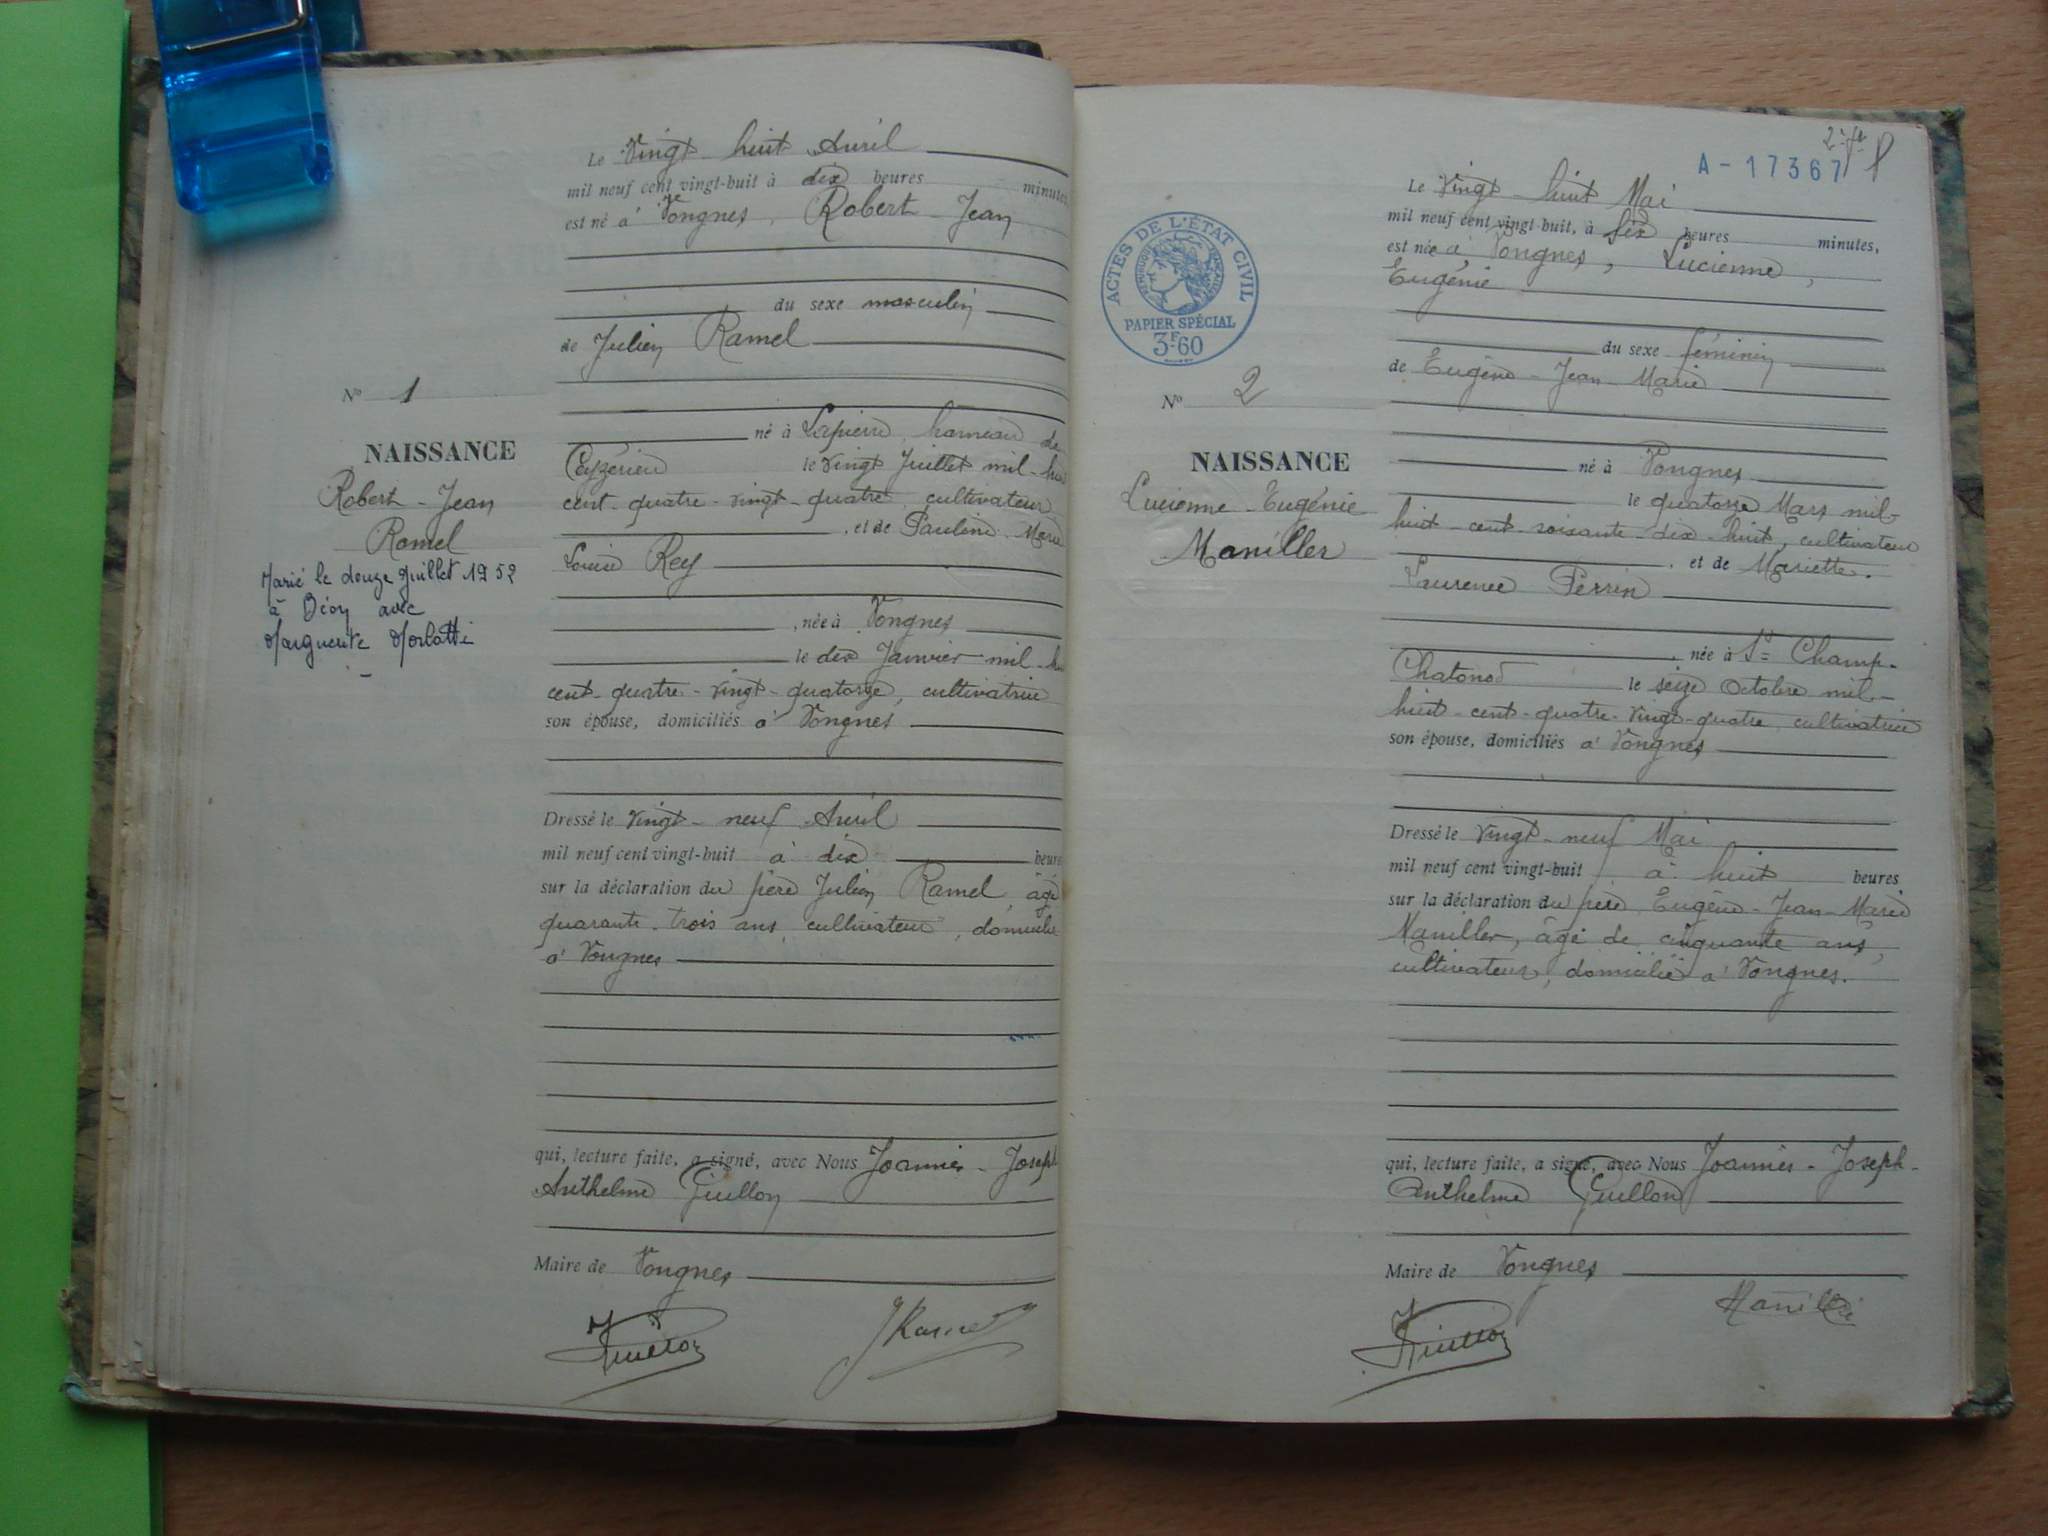 Le Vingt-huit Avril
mil neuf cent vingt-huit à dix heures minutes
est né à Vongnes, Robert-Jean
du sexe masculin
de Julien Ramel
N° 1
NAISSANCE
Robert-Jean
Ramel
Marié le douze Juillet 1952
à Béon avec
Marguerite
né à Lapierre, hameau de
Ceyzérieu le vingt Juillet mil-hui
cent-quatre-vingt-quatre, cultivateur
, et de Pauline-Marie
Louise Rey
, née à Vongnes
le dix Janvier mil-hu
cent-quatre-vingt-quatorze, cultivatrice
son épouse, domiciliés à Vongnes
Dressé le vingt-neuf Avril
mil neuf cent vingt-huit à dix heure
sur la déclaration du père Julien Ramel, âgé
quarante-trois ans, cultivateur, domicilié
à Vongnes
qui, lecture faite, a signé, avec Nous Joannès-Joseph
Anthelme Guillon
Maire de Vongnes
Guillon
JRamel
2e ft
A-17367
Le Vingt-huit Mai
mil neuf cent vingt-huit, à six heures minutes,
est née à Vongnes, Lucienne,
Eugénie
ACTES DE L'ÉTAT CIVIL
RÉPUBLIQUE FRANÇAISE
PAPIER SPÉCIAL
3F60
du sexe féminin
de Eugène-Jean-Marie
N° 2
NAISSANCE
Lucienne-Eugénie
Maniller
né à Vongnes
le quatorze Mars mil-
huit-cent-soixante-dix-huit, cultivateur
, et de Mariette-
Laurence Perrin
, née à St Champ-
Chatonod le seize Octobre mil-
huit-cent-quatre-vingt-quatre, cultivatrice
son épouse, domiciliés à Vongnes
Dressé le vingt-neuf Mai
mil neuf cent vingt-huit à huit heures
sur la déclaration du père, Eugène-Jean-Marie
Maniller, âgé de cinquante ans,
cultivateur, domicilié à Vongnes.
qui, lecture faite, a signé, avec Nous Joannès-Joseph-
Anthelme Guillon
Maire de Vongnes
Guillon
Maniller